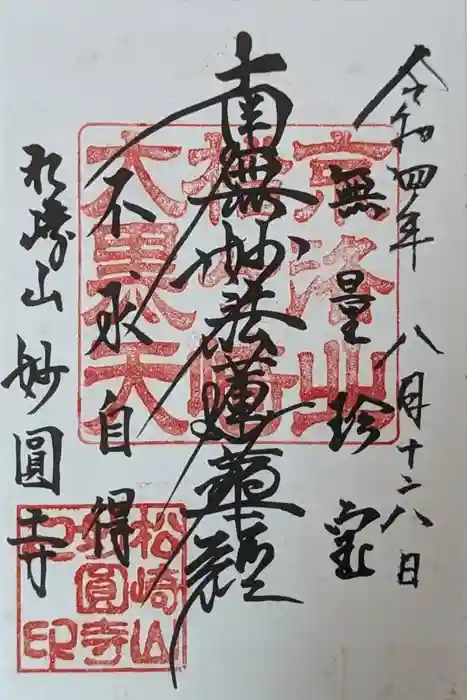 令和四年 八月十二八日
無量珍宝
南無妙法蓮華経
不求自得
松崎山 妙圓寺
京洛北
松ヶ崎
大黒天
松崎山
妙圓寺
之印